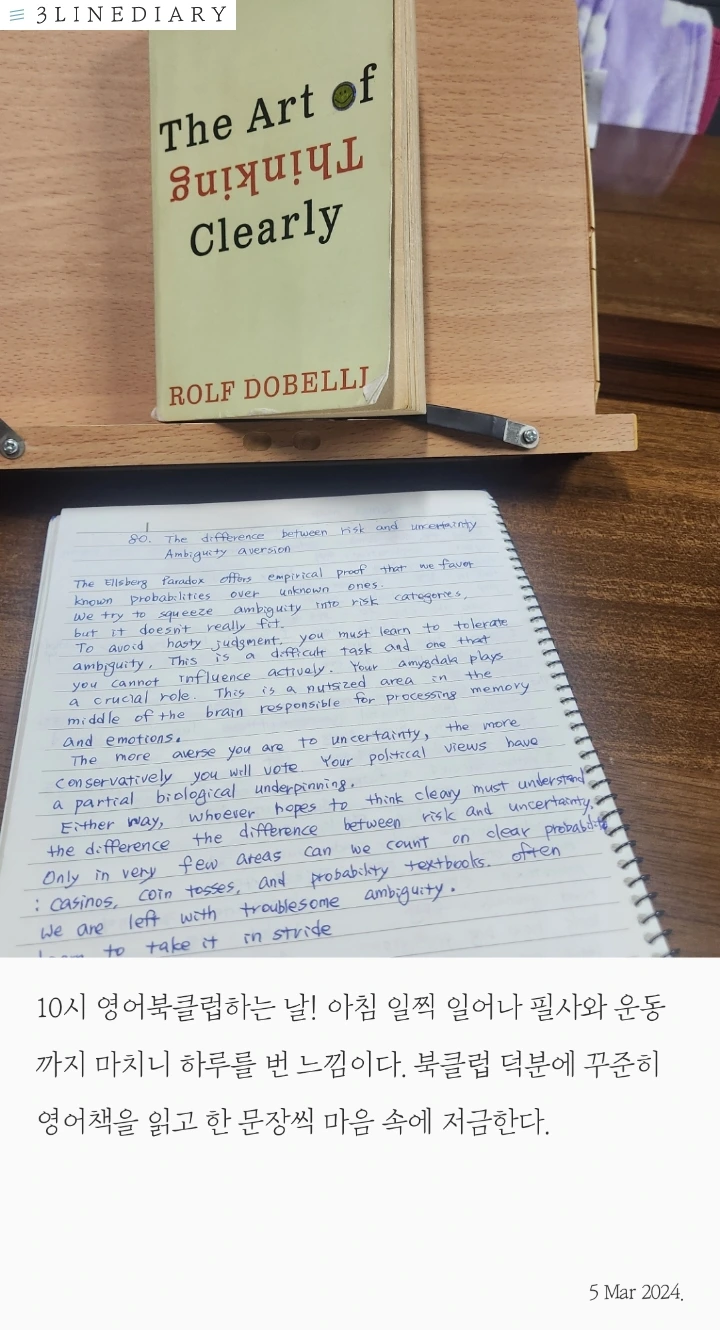 3LINEDIARY
The Art of
Thinking
Clearly
ROLF DOBELLI
80. The difference between risk and uncertainty
Ambiguity aversion
The Ellsberg Paradox offers empirical proof that we favor
known probabilities over unknown ones.
We try to squeeze ambiguity into risk categories,
but it doesn't really fit.
To avoid hasty judgment, you must learn to tolerate
ambiguity. This is a difficult task and one that
you cannot influence actively. Your amygdala plays
a crucial role. This is a nutsized area in the
middle of the brain responsible for processing memory
and emotions.
The more averse you are to uncertainty, the more
conservatively you will vote Your political views have
a partial biological underpinning.
Either way, whoever hopes to think cleary must understand
the difference the difference between risk and uncertainty.
Only in very few areas can we count on clear probabilities
: casinos, coin tosses, and probability textbooks. often
we are left with troublesome ambiguity.
to take it in stride
10시 영어북클럽하는 날! 아침 일찍 일어나 필사와 운동
까지 마치니 하루를 번 느낌이다. 북클럽 덕분에 꾸준히
영어책을 읽고 한 문장씩 마음 속에 저금한다.
5 Mar 2024.